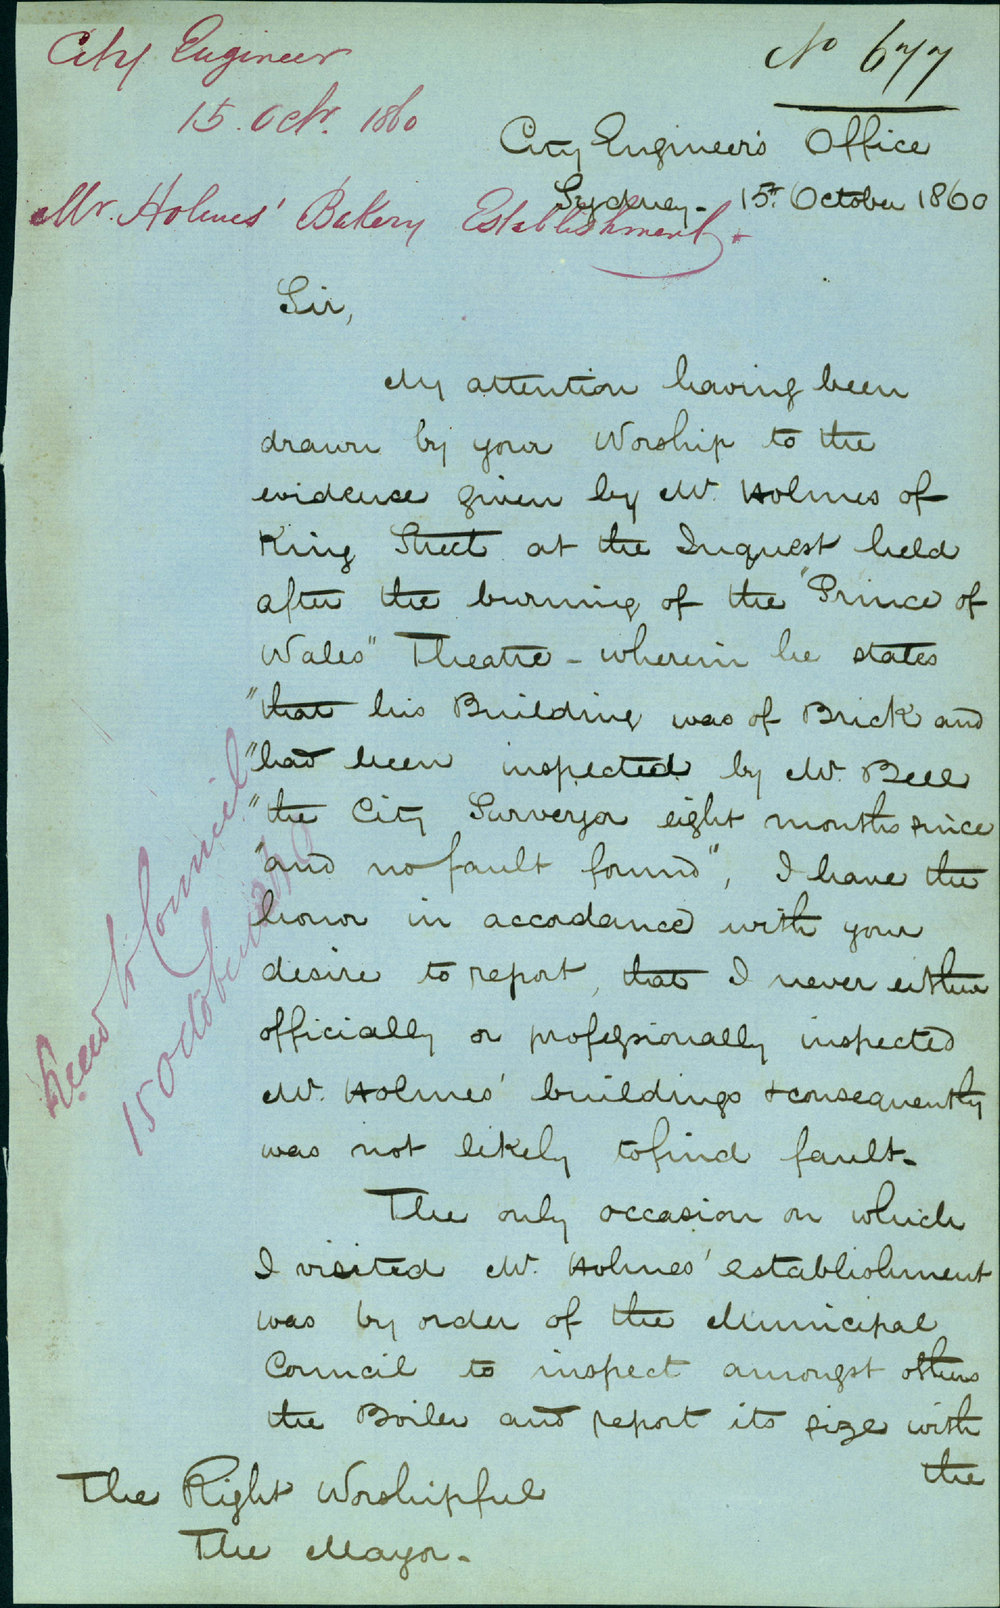 City Engineer
15. Octr. 1860
Mr. Holmes' Bakery Establishment.
No 677
City Engineer's Office
Sydney - 15th October 1860
Sir,
My attention having been
drawn by your Worship to the
evidence given by Mr. Holmes of
King Street at the Inquest held
after the burning of the "Prince of
Wales" Theatre - wherein he states
"that his Building was of Brick and
"had been inspected by Mr. Bell
"the City Surveyor eight months since
"and no fault found", I have the
honor in accordance with your
desire to report, that I never either
officially or professionally inspected
Mr. Holmes' buildings & consequently
was not likely to find fault -
The only occasion on which
I visited Mr. Holmes' establishment
was by order of the Municipal
Council to inspect amongst others
the Boiler and report its size with
the
The Right Worshipful
The Mayor -
Read to Council
15 October 1860